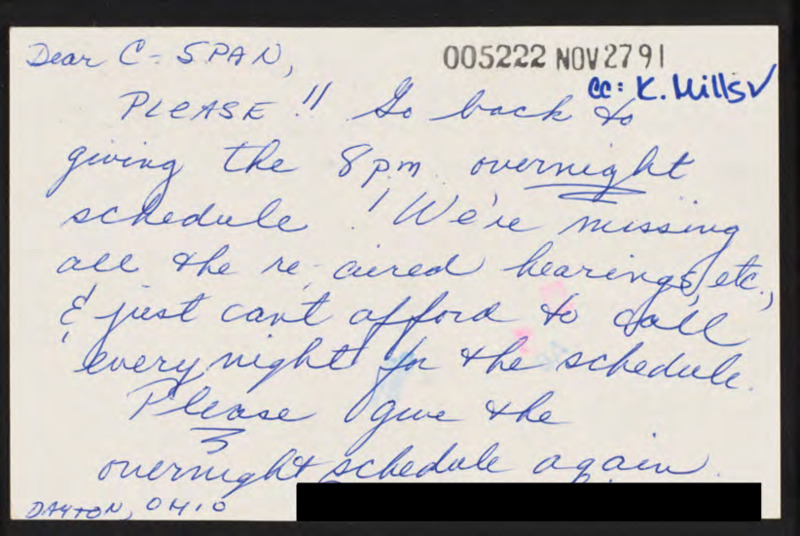 Dear C-SPAN,
005222 NOV 27 91
cc: K. Mills✓
PLEASE!! Go back to
giving the 8pm overnight
schedule! We're missing
all the re-aired hearings, etc.,
& just can't afford to call
every night for the schedule.
Please give the
overnight schedule again.
DAYTON, OHIO